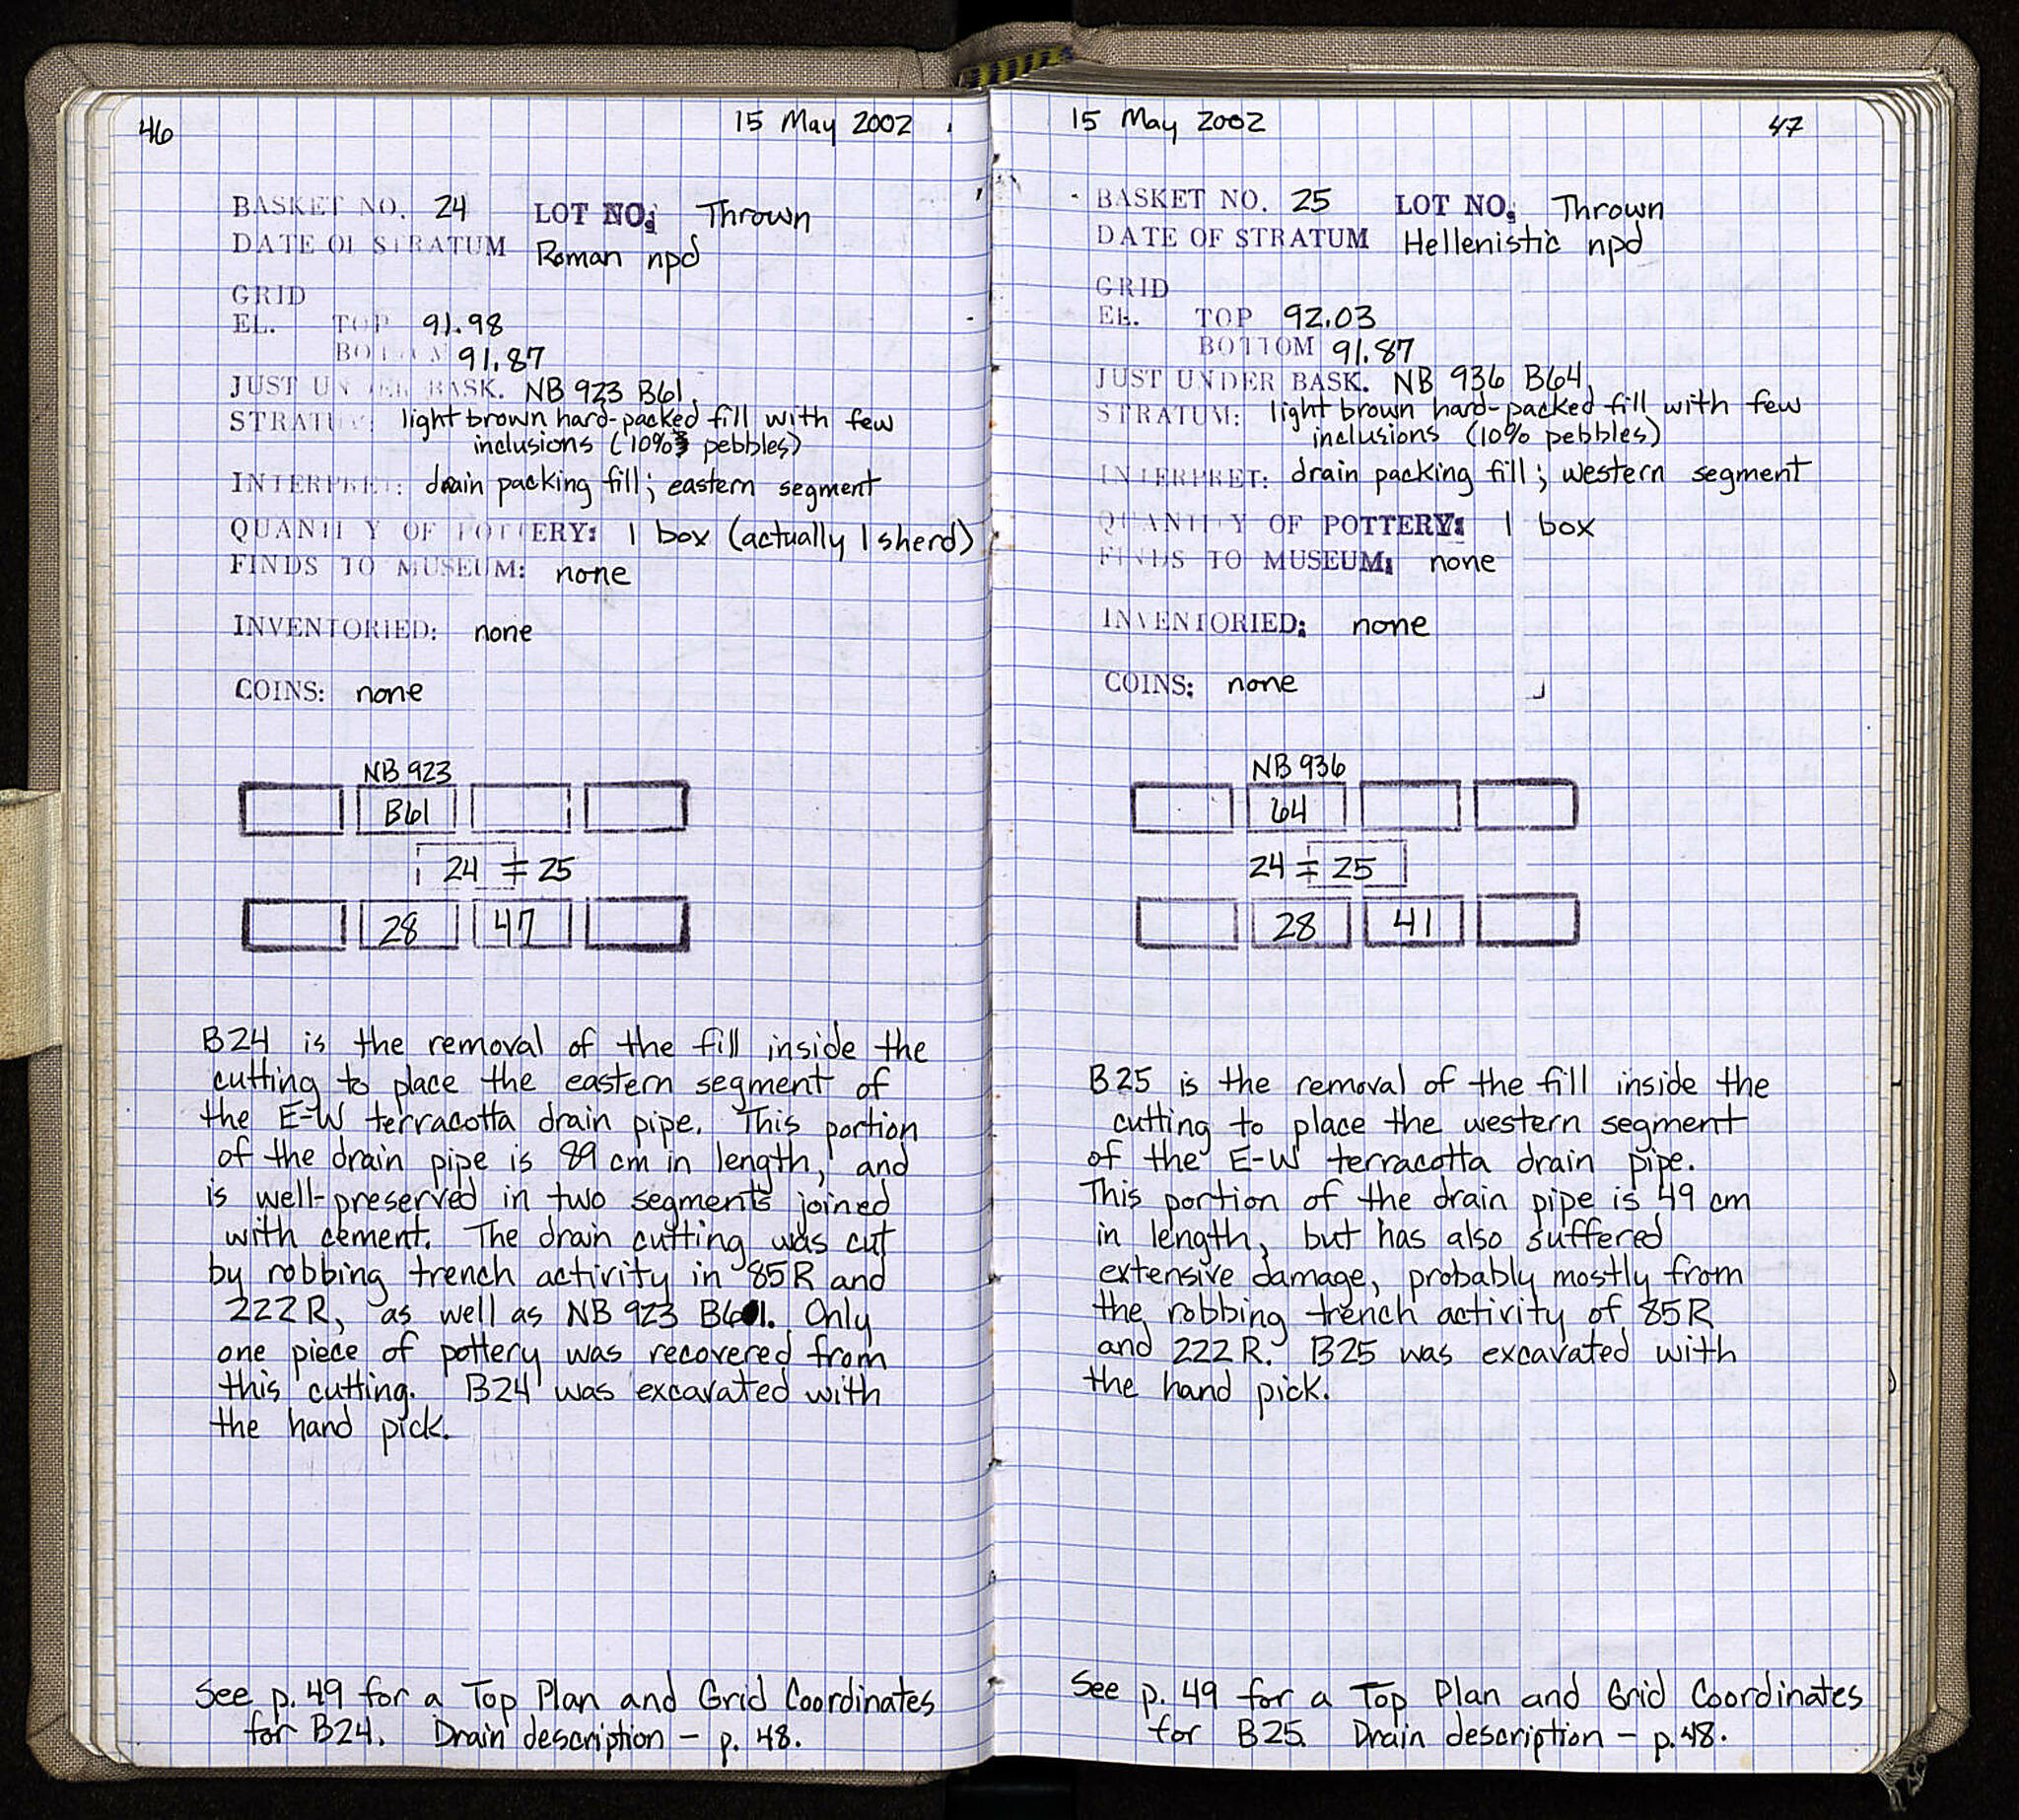 46
15 May 2002
BASKET NO. 24 LOT NO: Thrown
DATE OF STRATUM Roman npd
GRID
EL. TOP 91.98
BOTTOM 91.87
JUST UNDER BASK. NB 923 B61,
STRATUM: light brown hard-packed fill with few
inclusions (10% pebbles)
INTERPRET: drain packing fill; eastern segment
QUANTITY OF POTTERY: 1 box (actually 1 sherd)
FINDS TO MUSEUM: none
INVENTORIED: none
COINS: none
NB 923
B61
24 = 25
28 47
B24 is the removal of the fill inside the
cutting to place the eastern segment of
the E-W terracotta drain pipe. This portion
of the drain pipe is 89 cm in length, and
is well-preserved in two segments joined
with cement. The drain cutting was cut
by robbing trench activity in 85R and
222R, as well as NB 923 B61. Only
one piece of pottery was recovered from
this cutting. B24 was excavated with
the hand pick.
See p. 49 for a Top Plan and Grid Coordinates
for B24. Drain description - p. 48.
15 May 2002
47
BASKET NO. 25 LOT NO: Thrown
DATE OF STRATUM Hellenistic npd
GRID
EL. TOP 92.03
BOTTOM 91.87
JUST UNDER BASK. NB 936 B64,
STRATUM: light brown hard-packed fill with few
inclusions (10% pebbles)
INTERPRET: drain packing fill; western segment
QUANTITY OF POTTERY: 1 box
FINDS TO MUSEUM: none
INVENTORIED: none
COINS: none
NB 936
64
24 = 25
28 41
B25 is the removal of the fill inside the
cutting to place the western segment
of the E-W terracotta drain pipe.
This portion of the drain pipe is 49 cm
in length, but has also suffered
extensive damage, probably mostly from
the robbing trench activity of 85R
and 222R. B25 was excavated with
the hand pick.
See p. 49 for a Top Plan and Grid Coordinates
for B25. Drain description - p. 48.